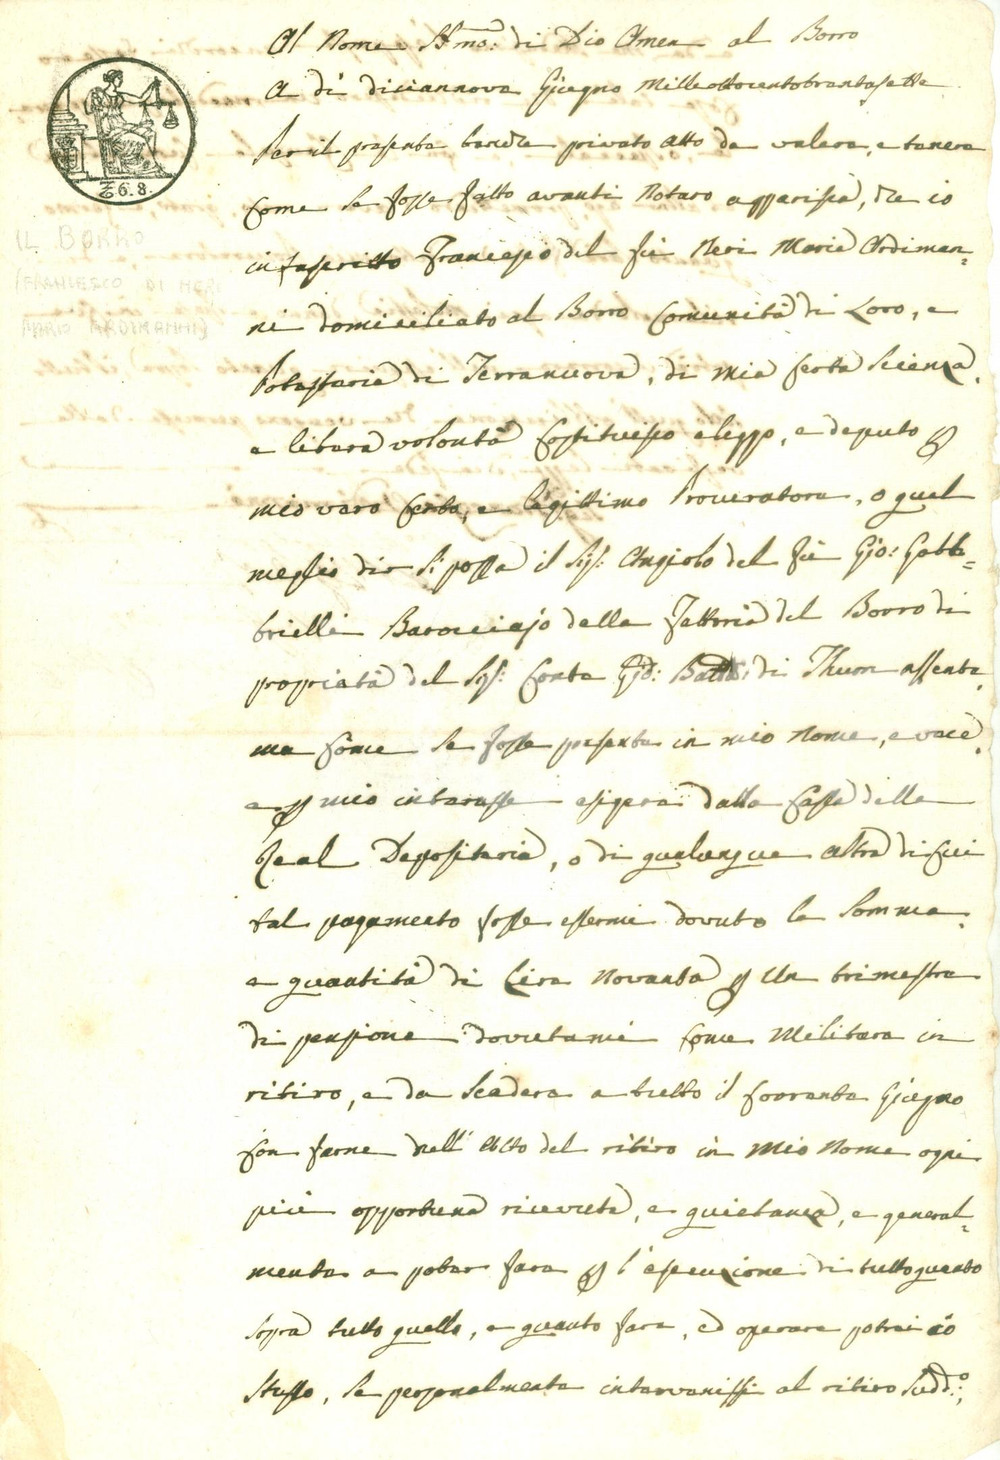 Al Nome SSmo: di Dio Amen al Borro
A dì diciannove Giugno Milleottocentotrentasette
Per il presente benchè privato atto da valere, e tenere
Come se fosse fatto avanti Notaro apparisce, che io
infrascritto Francesco del fù Neri Maria Ardiman=
ni domiciliato al Borro Comunità di Loro, e
Potesteria di Terranuova, di mia certa scienza,
e libera volontà Costituisco eleggo, e deputo p
mio vero certo, e legittimo Procuratore, o qual
meglio dir si possa il Sig: Angiolo del fù Gio: Gabb=
brielli Barocciajo della Fattoria del Borro di
proprietà del Sig: Conte Gio: Batta: di Thurn assente,
ma Come se fosse presente in mio Nome, e vece,
e p mio interesse esigere dalla Cassa della
Real Depositeria, o di qualunque altra di cui
tal pagamento fosse essermi dovuto la Somma,
e quantità di Lire Novanta p un trimestre
di pensione dovutami Come Militare in
ritiro, e da scadere a tutto il Corrente Giugno
Con farne nell' Atto del ritiro in Mio Nome ogni
più opportuna ricevuta, e quietanza, e general=
mente a poter fare p l'esecuzione di tutto quanto
sopra tutto quello, e quanto fare, ed operare potrei io
stesso, se personalmente intervenissi al ritiro sudd:º,
₶6.8.
IL BORRO
(FRANCESCO DI NERI
MARIO ARDIMANNI)